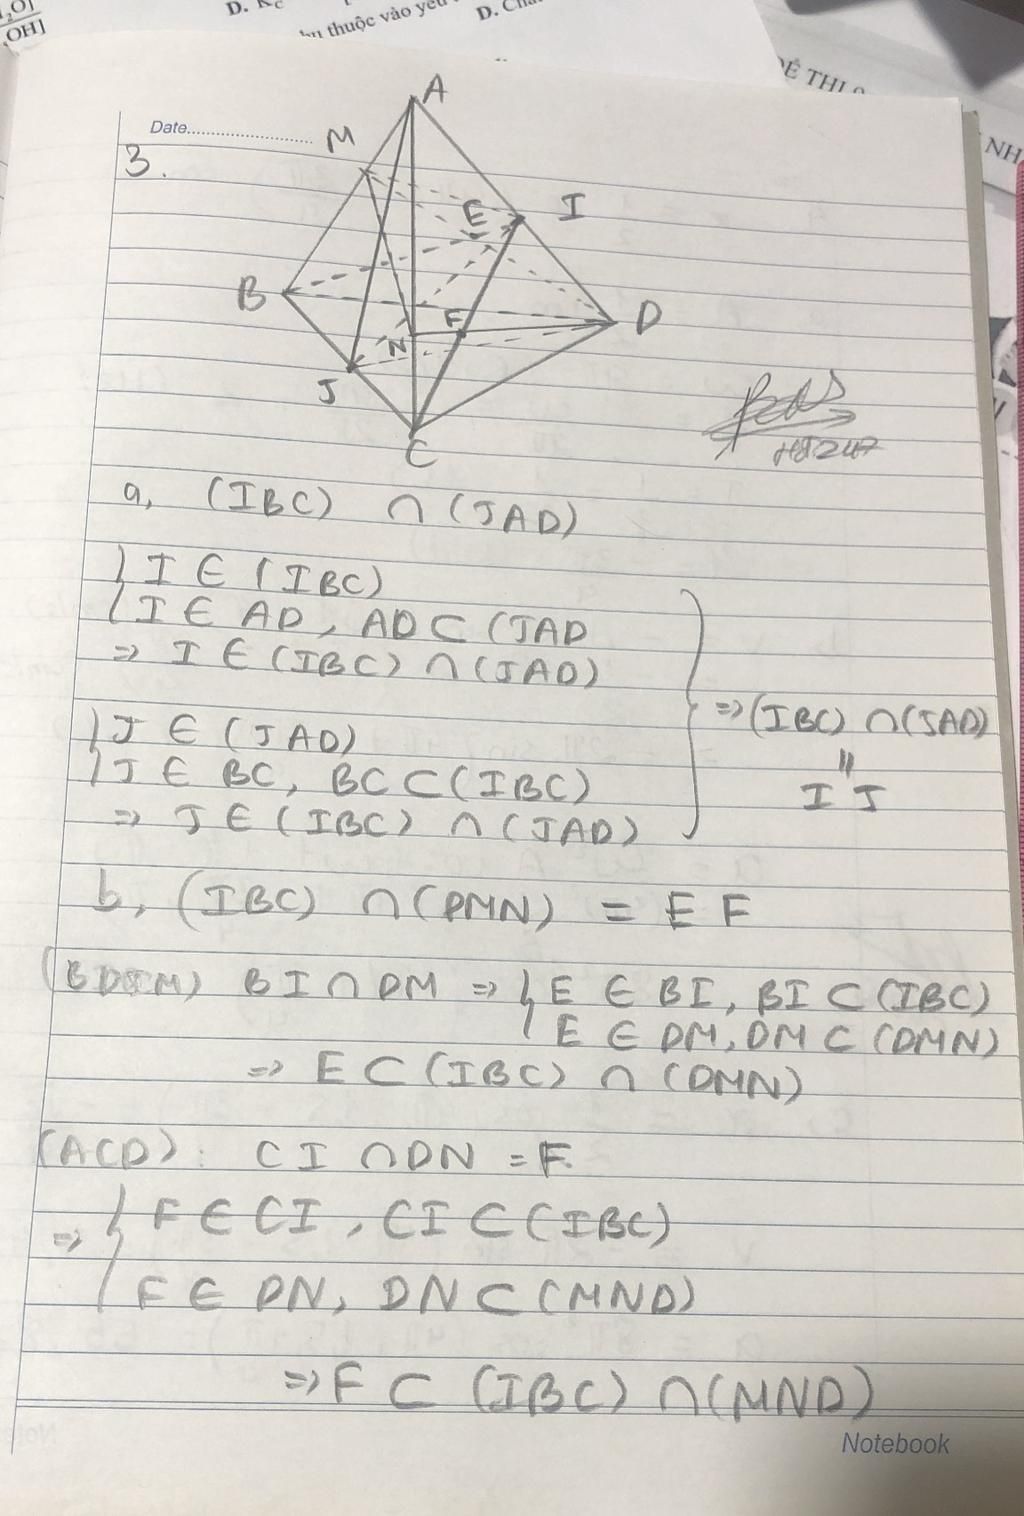 D. K_C
₂O]
OH]
thuộc vào yếu
D. Ch
ĐỀ THI
NH
Date
3.
A
M
E
I
B
F
D
N
J
C
a, (IBC) ∩ (JAD)
{ I ∈ (IBC)
{ I ∈ AD, AD ⊂ (JAD
=> I ∈ (IBC) ∩ (JAD)
{ J ∈ (JAD)
{ J ∈ BC, BC ⊂ (IBC)
=> J ∈ (IBC) ∩ (JAD)
} => (IBC) ∩ (JAD)
=
IJ
b, (IBC) ∩ (DMN) = EF
BI ∩ DM => { E ∈ BI, BI ⊂ (IBC)
E ∈ DM, DM ⊂ (DMN)
=> E ⊂ (IBC) ∩ (DMN)
(ACD): CI ∩ DN = F.
=> { F ∈ CI, CI ⊂ (IBC)
F ∈ DN, DN ⊂ (MND)
=> F ⊂ (IBC) ∩ (MND)
Notebook